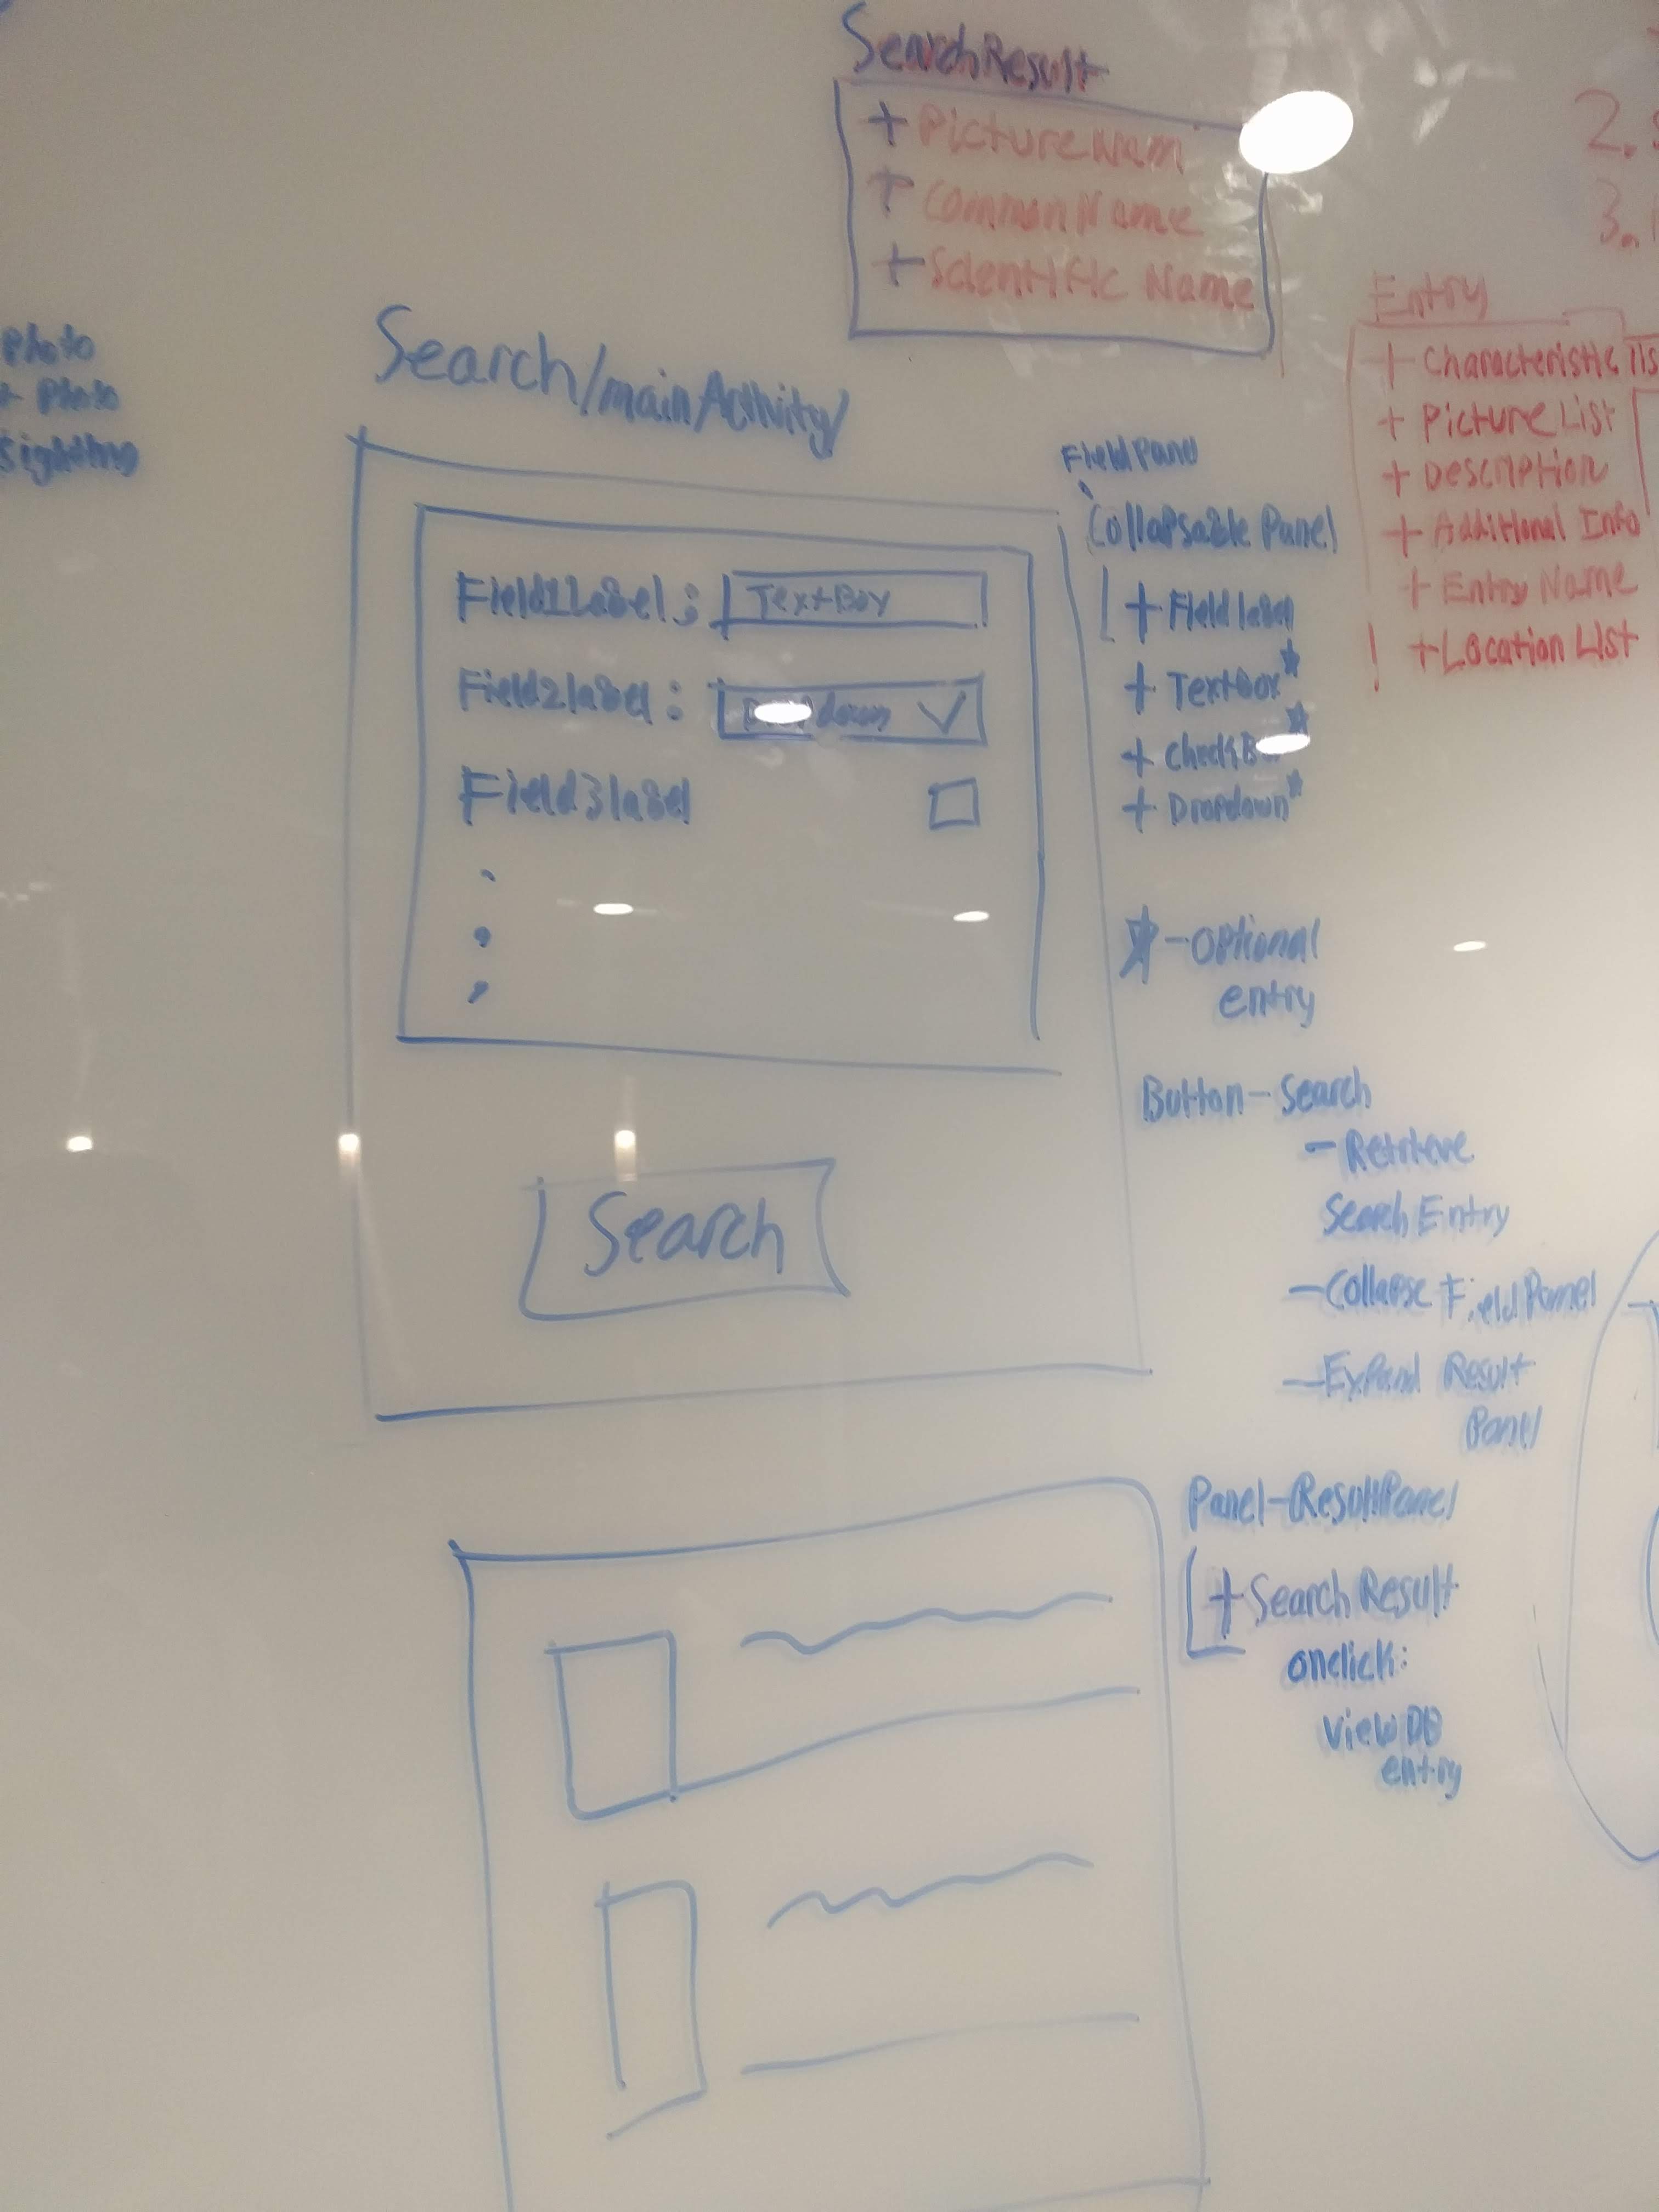 SearchResult
+ PictureNam
+ CommonName
+ Scientific Name
2.
3.
Entry
+ Characteristic lis
+ PictureList
+ Description
+ Additional Info
+ Entry Name
! + Location List
Photo
+ Photo
Sighting
Search/mainActivity
Field1Label: TextBox
Field2label: down
Field3label
Search
FieldPanel
Collapsable Panel
+ Field label
+ TextBox*
+ CheckB *
+ Dropdown*
* - Optional
entry
Button - Search
- Retrieve
Search Entry
- Collapse FieldPanel
- Expand Result
Panel
Panel - ResultPanel
+ SearchResult
onclick:
view DB
entry